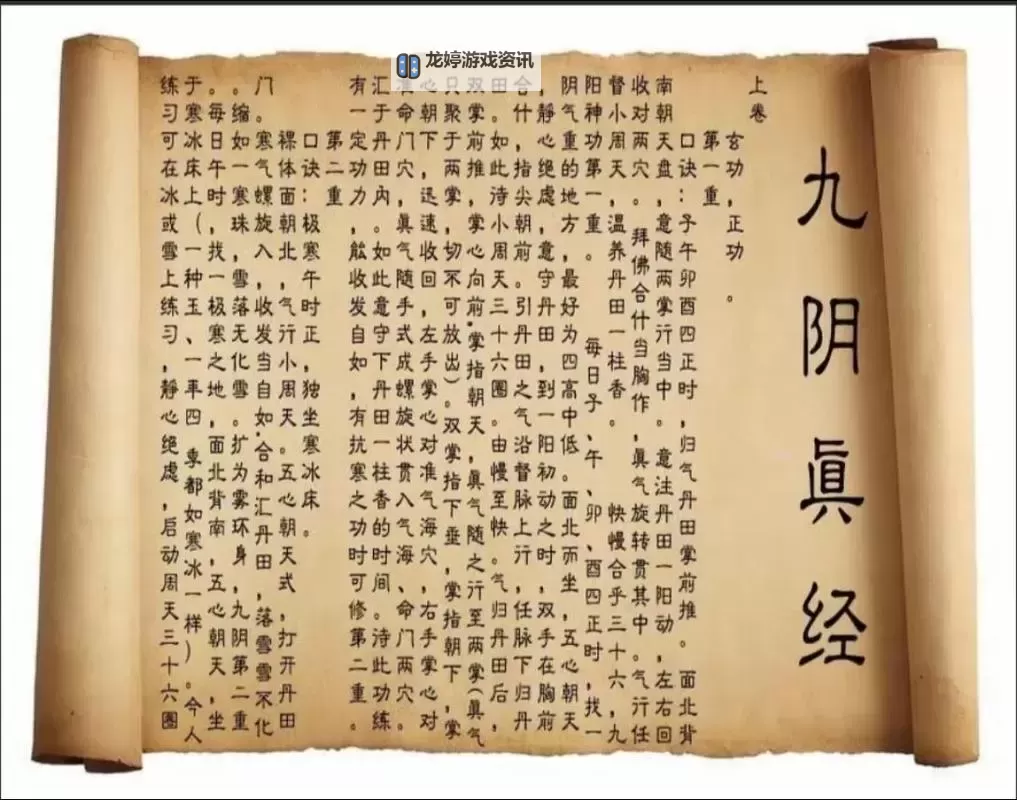 龙婷游戏资讯
九阴眞经
上卷
玄功，正功。
第一重
口诀：子午卯酉四正时，归气丹田掌前推。面北背
南朝天盘，意随两掌行当中。意注丹田一阳动，左右回
收对两穴。拜佛合什当胸作，眞气旋转贯其中。气行任
督小周天，温养丹田一柱香。快慢合乎三十六，九
阳神功第一重。每日子、午、卯、酉四正时，找一
阴气重的地方，最好为四高中低。面北而坐，五心朝天
，静心绝虑，意守丹田，到一阳初动之时，双手在胸前
合什，指尖朝前。引丹田之气沿督脉上行，任脉下归丹
田。如此待小周天三十六圈。由慢至快。气归丹田后，
双掌前推，掌心向前.掌指朝天，眞气随之行至两掌（眞气
只聚于两掌，切不可放出）双掌指下垂，掌指朝下，掌
心朝下，迅速收回，左手掌心对准气海穴，右手掌心对
准命门穴，眞气随手式成螺旋状贯入气海、命门两穴。
汇于丹田内。如此意守下丹田一柱香的时间。待此功练
有一定功力，能收发自如，有抗寒之功时可修第二重。
第二重
口诀：极寒午时正，独坐寒冰床。
裸体面朝北，气行小周天。五心朝天式，打开丹田
门 寒气螺旋入，收发当自如.合和汇丹田，落雪雪不化
。缩如一寒珠，雪落无化雪。扩为雾环身，九阴第二重
。每日午时，找一极寒之地，面北背南，五心朝天，坐
于寒冰床上（一种玉、一年四季都如寒冰一样）。今人
练习可在冰或雪上练习，静心绝虑，启动周天三十六圈